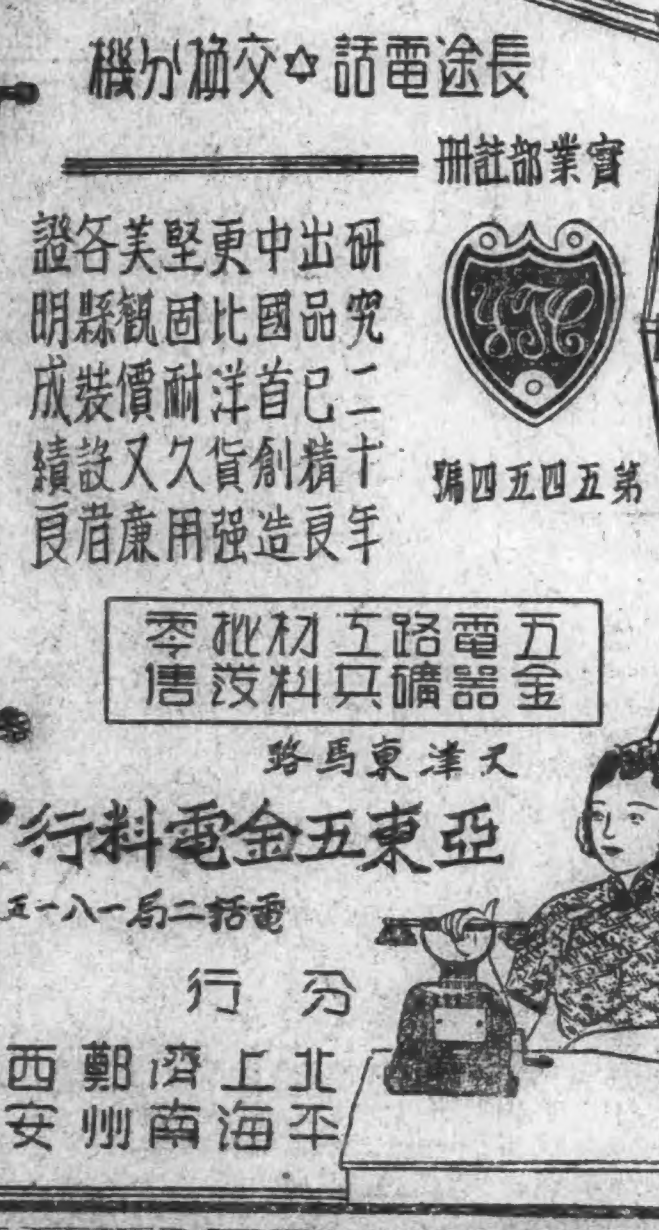 長途電話✡交換分機
實業部註冊
YTC
第五四五四號
研究二十年
出品已精良
中國首創造
更比洋貨强
堅固耐久用
美觀價又廉
各縣裝設者
證明成績良
五金
電器
路礦
工具
材料
批發
零售
天津東馬路
亞東五金電料行
電話二局一八一五
分行
北平
上海
濟南
鄭州
西安